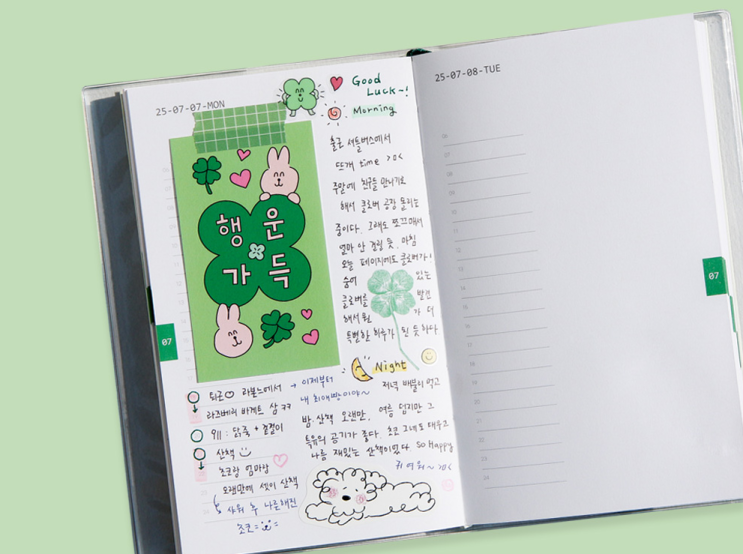 25-07-07-MON
Good
Luck~!
Morning
출근 셔틀버스에서
뜨개 time >o<
주말에 친구들 만나기로
해서 클로버 공장 돌리는
중이다. 그래도 쪼끄매서
얼마 안 걸릴 듯. 아침
오늘 페이지에도 클로버가!
숨어 있는
클로버를 발견
해서 뭔가 더
특별한 하루가 된 듯하다
행운
가득
07
Night
저녁 배불리 먹고
밤 산책 오랜만. 여름 덥지만 그
특유의 공기가 좋다. 초코 그네도 태우고
나름 재밌는 산책이었다. So Happy
귀여워~ >o<
퇴근 라본느에서
→ 이제부터
내 최애빵이야~
라즈베리 바게트 삼 ㅋㅋ
저녁: 닭죽 + 겉절이
산책
초코랑 엄마랑
오랜만에 셋이 산책
샤워 후 나른해진
초코=
25-07-08-TUE
07